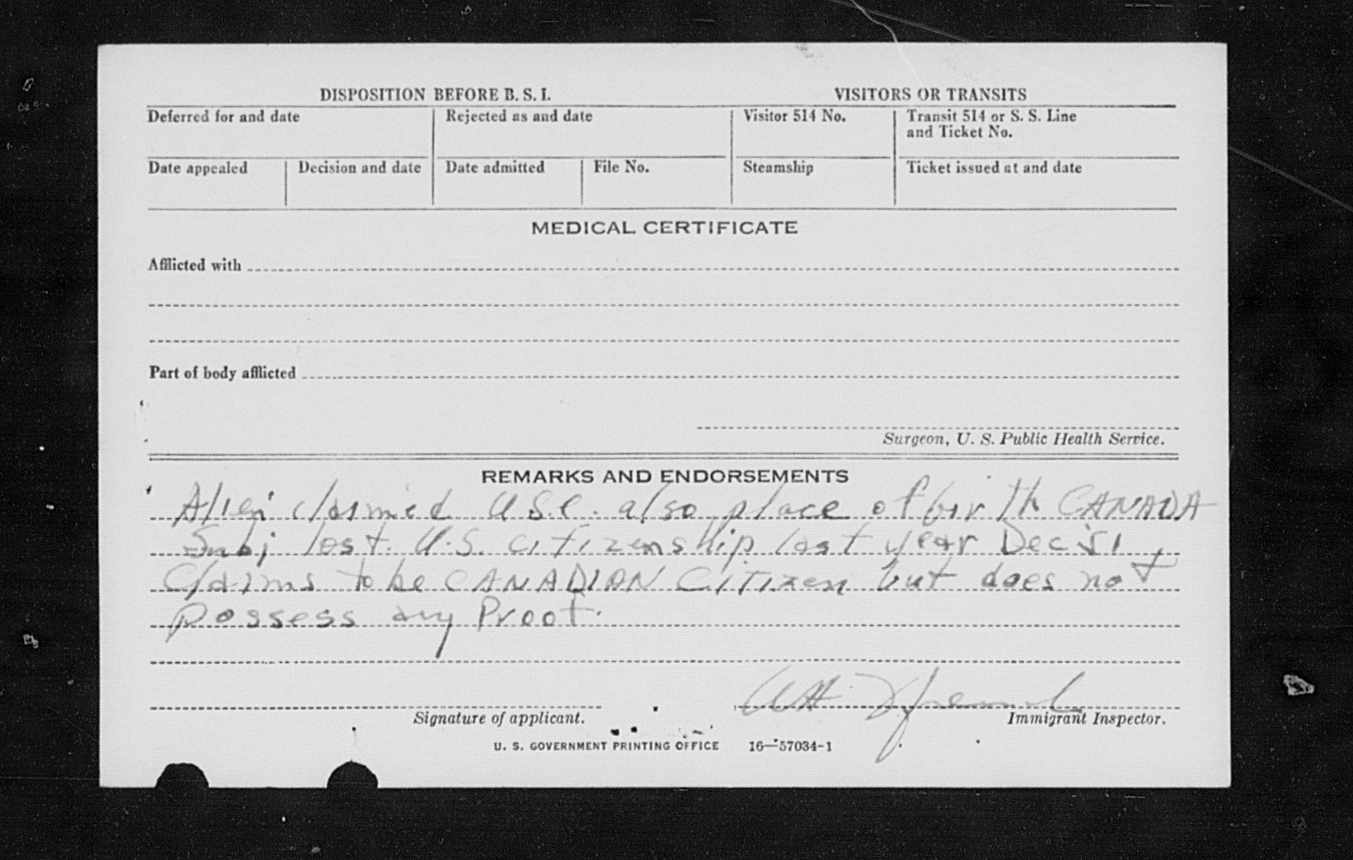 DISPOSITION BEFORE B. S. I.
VISITORS OR TRANSITS
Deferred for and date
Rejected as and date
Visitor 514 No.
Transit 514 or S. S. Line
and Ticket No.
Date appealed
Decision and date
Date admitted
File No.
Steamship
Ticket issued at and date
MEDICAL CERTIFICATE
Afflicted with
Part of body afflicted
Surgeon, U. S. Public Health Service.
REMARKS AND ENDORSEMENTS
Alien claimed U.S.C. also place of birth CANADA
Subj lost U.S. citizenship last year Dec 51,
Claims to be CANADIAN Citizen but does not
possess any Proof.
Signature of applicant.
Immigrant Inspector.
U. S. GOVERNMENT PRINTING OFFICE 16—57034-1